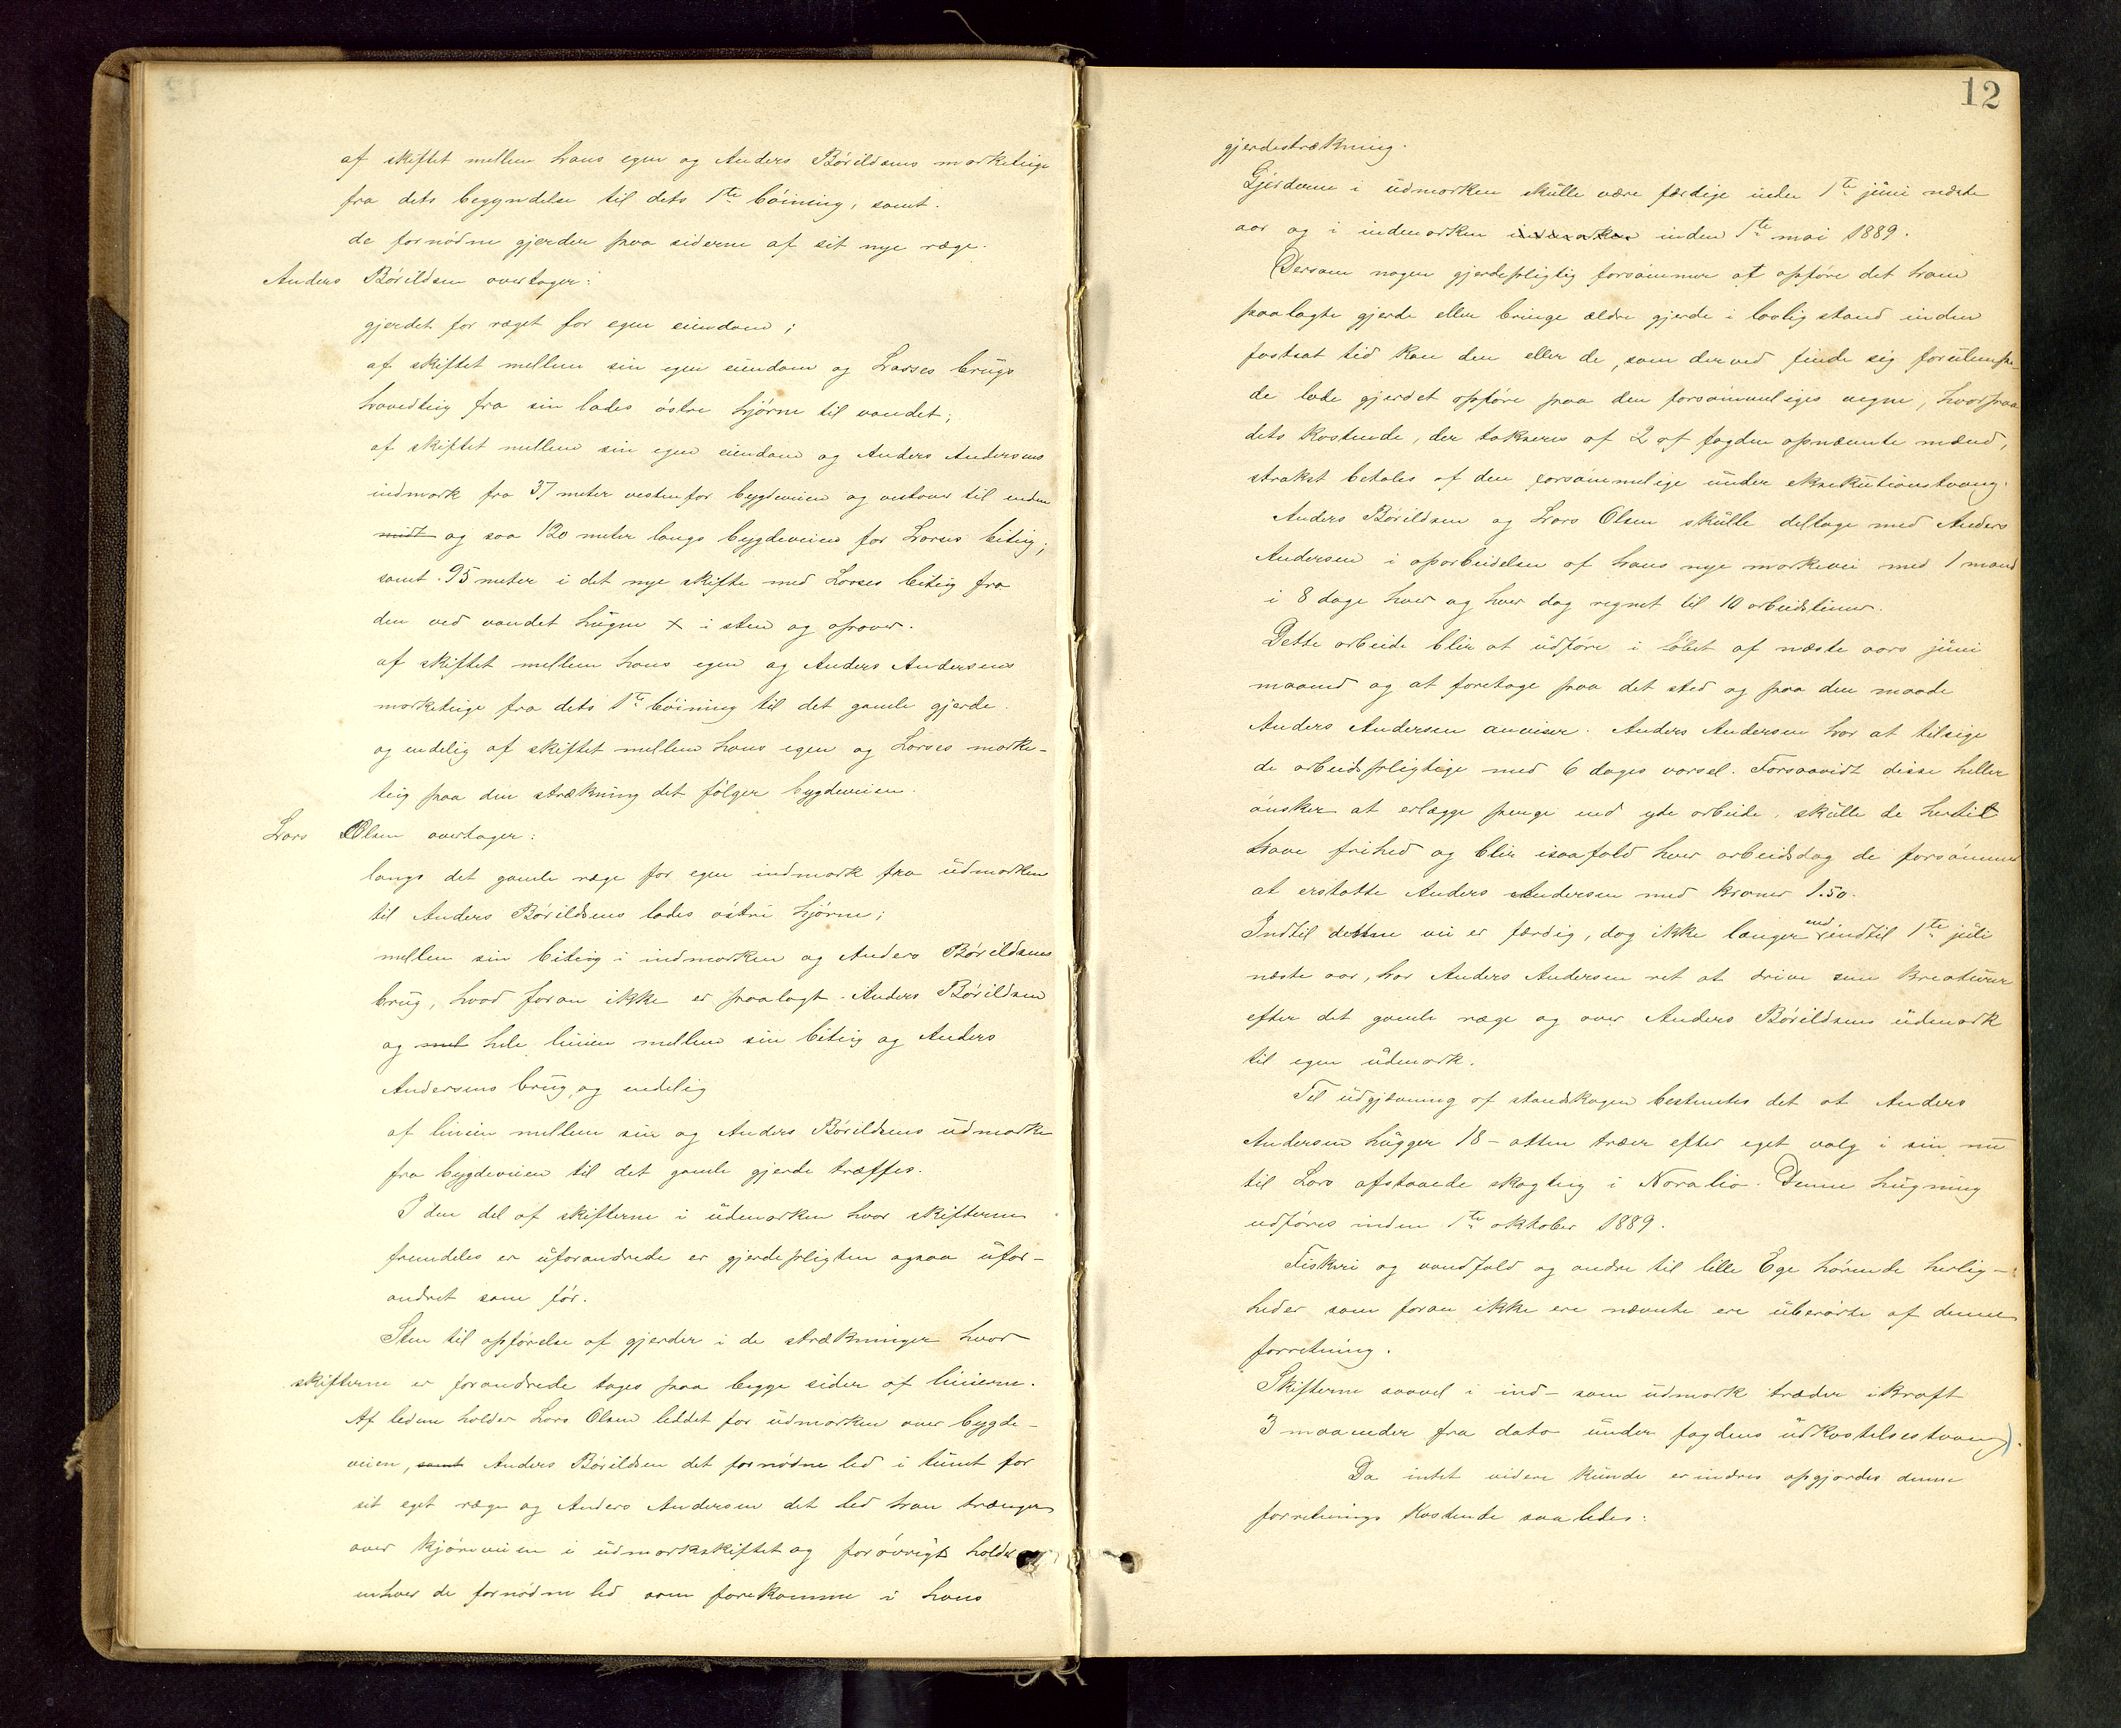 af skiftet mellem hans egen og Anders Bórildsens marketeige
fra dets begyndelse til dets 1te bóining, samt
de fornódne gjerder paa siderne af sit nye ræge.
Anders Bórildsen overtager:
gjerdet for ræget for egen eiendom;
af skiftet mellem sin egen eiendom og Larses brugs
hovedteig fra sin lades óstre hjórne til vandet;
af skiftet mellem sin egen eiendom og Anders Andersens
indmark fra 37 meter vestenfor bygdeveien og vestover til enden
midt og saa 120 meter langs bygdeveien for Larses biteig;
samt 95 meter i det nye skifte med Larses biteig fra
den ved vandet hugne x i sten og opover.
af skiftet mellem hans egen og Anders Andersens
marketeige fra dets 1te bóining til det gamle gjerde.
og endelig af skiftet mellem hans egen og Larses marke-
teig paa den strækning det fólger bygdeveien.
Lars Olsen overtager:
langs det gamle ræge for egen indmark fra udmarken
til Anders Bórildsens lades óstre hjórne;
mellem sin biteig i indmarken og Anders Bórildsens
brug, hvad foran ikke er paalagt Anders Bórildsen
og met hele linien mellem sin biteig og Anders
Andersens brug, og endelig
af linien mellem sin og Anders Bórildsens udmarke
fra bygdeveien til det gamle gjerde træffes.
I den del af skifterne i udemarken hvor skifterne
fremdeles er uforandrede er gjerdepligten ogsaa ufor-
andret som fór.
Sten til opfórelse af gjerder i de strækninger hvor
skifterne er forandrede tages paa begge sider af linierne.
Af ledene holder Lars Olsen leddet for udmarken over bygde-
veien, samt Anders Bórildsen det fornódne led i tunet for
sit eget ræge og Anders Andersen det led han trænger
over kjóreveien i udmarkskiftet og foróvrigt holder
enhver de fornódne led som forekomme i hans
12
gjerdestrækning.
Gjerderne i udmarken skulle være færdige inden 1te juni næste
aar og i indemarken indmarken inden 1te mai 1889.
Dersom nogen gjerdepligtig forsómmer at opfóre det ham
paalagte gjerde eller bringe ældre gjerde i lovlig stand inden
fastsat tid kan den eller de, som derved finde sig forulempe-
de lade gjerdet opfóre paa den forsómmeliges vegne, hvorpaa
dets kostende, der takseres af 2 af fogden opnævnte mænd,
strakst betales af den forsómmelige under eksekutionstvang.
Anders Bórildsen og Lars Olsen skulle deltage med Anders
Andersen i oparbeidelsen af hans nye markevei med 1 mand
i 8 dage hver og hver dag regnet til 10 arbeidstimer.
Dette arbeide blir at udfóre i lóbet af næste aars juni
maaned og at foretage paa det sted og paa den maade
Anders Andersen anviser. Anders Andersen har at tilsige
de arbeidspligtige med 6 dages varsel. Forsaavidt disse heller
ónsker at erlægge penge end yde arbeide, skulle de hertil
have frihed og blir isaafald hver arbeidsdag de forsómmer
at erstatte Anders Andersen med kroner 1.50.
Indtil denne vei er færdig, dog ikke længer end indtil 1te juli
næste aar, har Anders Andersen ret at drive sine kreaturer
efter det gamle ræge og over Anders Bórildsens udemark
til egen udmark.
Til udgjævning af standskogen bestemtes det at Anders
Andersen hugger 18 - atten træer efter eget valg i sin nu
til Lars afstaaede skogteig i Noralio. Denne hugning
udfóres inden 1te oktober 1889.
Fiskeri og vandfald og andre til lille Ege hórende herlig-
heder som foran ikke ere nævnte ere uberórte af denne
forretning.
Skifterne saavel i ind- som udmark træder ikraft
3 maaneder fra dato under fogdens udkastelsestvang.
Da intet videre kunde erindres opgjordes denne
forretnings kostende saaledes: